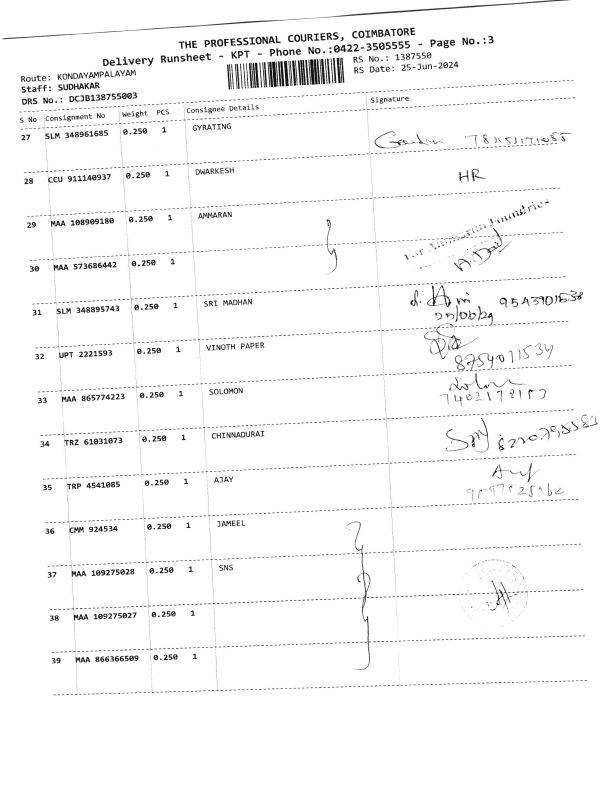 THE PROFESSIONAL COURIERS, COIMBATORE
Delivery Runsheet - KPT - Phone No.:0422-3505555 - Page No.:3
Route: KONDAYAMPALAYAM
RS No.: 1387550
Staff: SUDHAKAR
RS Date: 25-Jun-2024
DRS No.: DCJB138755003
S No Consignment No Weight PCS Consignee Details Signature
27 SLM 348961685 0.250 1 GYRATING
28 CCU 911140937 0.250 1 DWARKESH HR
29 MAA 108909180 0.250 1 AMMARAN
30 MAA 573686442 0.250 1
31 SLM 348895743 0.250 1 SRI MADHAN
32 UPT 2221593 0.250 1 VINOTH PAPER 8754011534
33 MAA 865774223 0.250 1 SOLOMON
34 TRZ 61031073 0.250 1 CHINNADURAI
35 TRP 4541085 0.250 1 AJAY
36 CMM 924534 0.250 1 JAMEEL
37 MAA 109275028 0.250 1 SNS
38 MAA 109275027 0.250 1
39 MAA 866366509 0.250 1